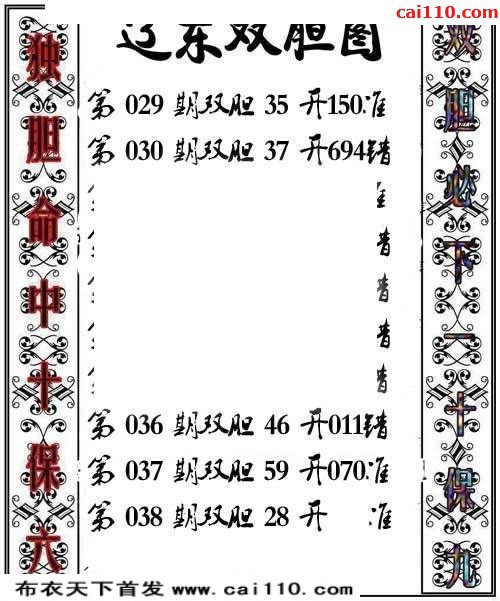 cai110.com
辽东双胆图
独胆命中十保六
第 029 期双胆 35 开150准
第 030 期双胆 37 开694错
第 036 期双胆 46 开011错
第 037 期双胆 59 开070准
第 038 期双胆 28 开 准
双胆必下一十保九
布衣天下首发 www.cai110.com